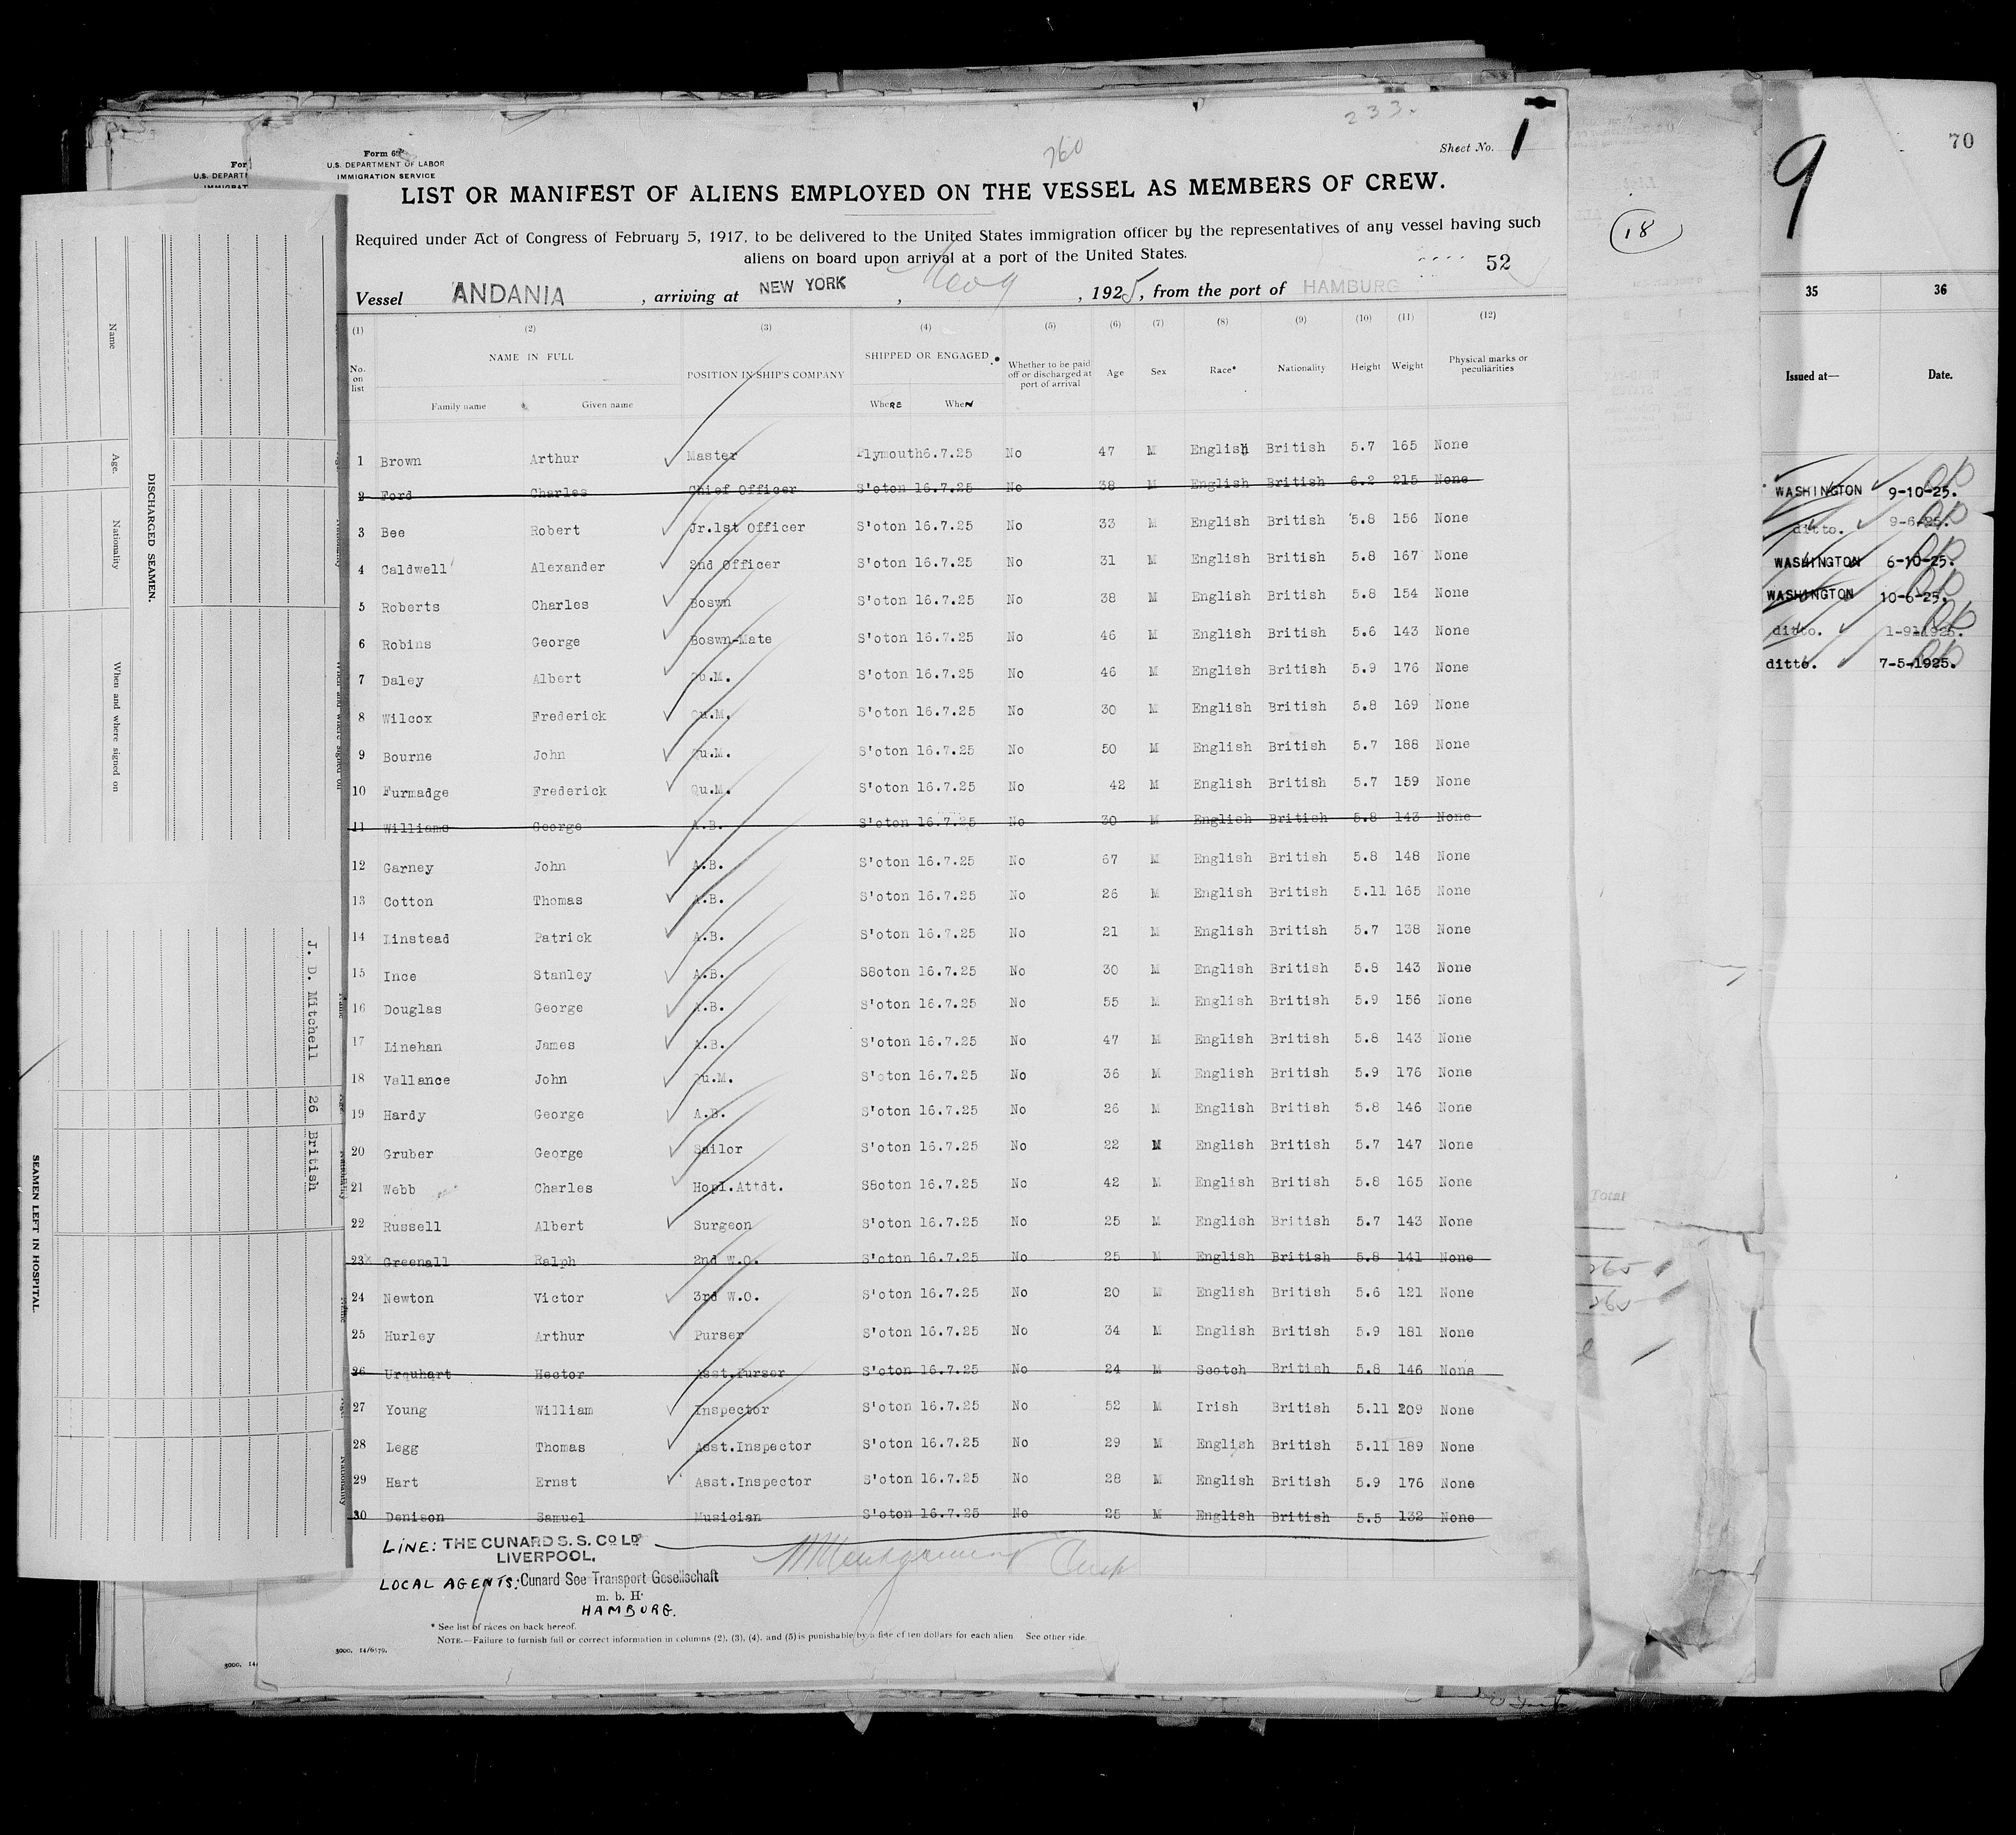 233.
760
Form 689
U.S. DEPARTMENT OF LABOR
IMMIGRATION SERVICE
Sheet No. 1
LIST OR MANIFEST OF ALIENS EMPLOYED ON THE VESSEL AS MEMBERS OF CREW.
Required under Act of Congress of February 5, 1917, to be delivered to the United States immigration officer by the representatives of any vessel having such
aliens on board upon arrival at a port of the United States.
52
Vessel ANDANIA, arriving at NEW YORK, 1925, from the port of HAMBURG
(1) (2) (3) (4) (5) (6) (7) (8) (9) (10) (11) (12)
No. on list NAME IN FULL POSITION IN SHIP'S COMPANY SHIPPED OR ENGAGED Whether to be paid off or discharged at port of arrival Age Sex Race* Nationality Height Weight Physical marks or peculiarities
Family name Given name WheRE WheN
1 Brown Arthur Master Plymouth6.7.25 No 47 M English British 5.7 165 None
2 Ford Charles Chief Officer S'oton 16.7.25 No 38 M English British 6.2 215 None
3 Bee Robert Jr.1st Officer S'oton 16.7.25 No 33 M English British 5.8 156 None
4 Caldwell Alexander 2nd Officer S'oton 16.7.25 No 31 M English British 5.8 167 None
5 Roberts Charles Boswn S'oton 16.7.25 No 38 M English British 5.8 154 None
6 Robins George Boswn-Mate S'oton 16.7.25 No 46 M English British 5.6 143 None
7 Daley Albert Qu.M. S'oton 16.7.25 No 46 M English British 5.9 176 None
8 Wilcox Frederick Qu.M. S'oton 16.7.25 No 30 M English British 5.8 169 None
9 Bourne John Qu.M. S'oton 16.7.25 No 50 M English British 5.7 188 None
10 Furmadge Frederick Qu.M. S'oton 16.7.25 No 42 M English British 5.7 159 None
11 Williams George A.B. S'oton 16.7.25 No 30 M English British 5.8 143 None
12 Garney John A.B. S'oton 16.7.25 No 67 M English British 5.8 148 None
13 Cotton Thomas A.B. S'oton 16.7.25 No 26 M English British 5.11 165 None
14 Linstead Patrick A.B. S'oton 16.7.25 No 21 M English British 5.7 138 None
15 Ince Stanley A.B. S8oton 16.7.25 No 30 M English British 5.8 143 None
16 Douglas George A.B. S'oton 16.7.25 No 55 M English British 5.9 156 None
17 Linehan James A.B. S'oton 16.7.25 No 47 M English British 5.8 143 None
18 Vallance John Qu.M. S'oton 16.7.25 No 36 M English British 5.9 176 None
19 Hardy George A.B. S'oton 16.7.25 No 26 M English British 5.8 146 None
20 Gruber George Sailor S'oton 16.7.25 No 22 M English British 5.7 147 None
21 Webb Charles Hopl.Attdt. S8oton 16.7.25 No 42 M English British 5.8 165 None
22 Russell Albert Surgeon S'oton 16.7.25 No 25 M English British 5.7 143 None
23 Greenall Ralph 2nd W.O. S'oton 16.7.25 No 25 M English British 5.8 141 None
24 Newton Victor 3rd W.O. S'oton 16.7.25 No 20 M English British 5.6 121 None
25 Hurley Arthur Purser S'oton 16.7.25 No 34 M English British 5.9 181 None
26 Urquhart Hector Asst.Purser S'oton 16.7.25 No 24 M Scotch British 5.8 146 None
27 Young William Inspector S'oton 16.7.25 No 52 M Irish British 5.11 209 None
28 Legg Thomas Asst.Inspector S'oton 16.7.25 No 29 M English British 5.11 189 None
29 Hart Ernst Asst.Inspector S'oton 16.7.25 No 28 M English British 5.9 176 None
30 Denison Samuel Musician S'oton 16.7.25 No 25 M English British 5.5 132 None
LINE: THE CUNARD S. S. Co LD
LIVERPOOL.
LOCAL AGENTS: Cunard See Transport Gesellschaft
m. b. H.
HAMBURG.
* See list of races on back hereof.
NOTE.—Failure to furnish full or correct information in columns (2), (3), (4), and (5) is punishable by a fine of ten dollars for each alien See other side.
5000. 14/6579.
5000. 14/
For
U.S. DEPARTM
IMMIGRAT
DISCHARGED SEAMEN.
Name Age. Nationality When and where signed on
SEAMEN LEFT IN HOSPITAL.
J. D. Mitchell 26 British
18
Total
260
9
70
35 36
Issued at— Date.
WASHINGTON 9-10-25.
ditto. 9-6-25.
WASHINGTON 6-10-25.
WASHINGTON 10-6-25.
ditto. 1-9-1925.
ditto. 7-5-1925.